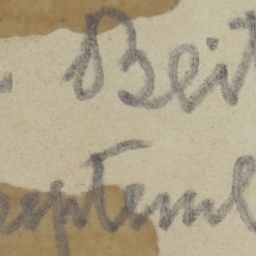 Beit
septemb